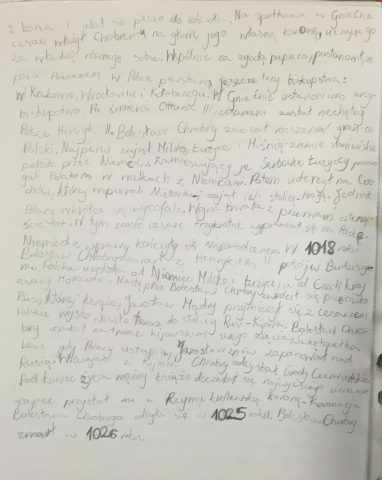 z konia i udał się pieszo do kościoła. Na spotkaniu w Gnieźnie
cesarz włożył Chrobremu na głowę jego własną koronę, uznając go
za władcę równego sobie. Wspólnie za zgodą papieża, postanowił, że
poza Poznaniem w Polce powstaną jeszcze trzy biskupstwa:
w Krakowie, Wrocławiu i Kołobrzegu. W Gnieźnie ustanowiono arcy-
biskupstwo. Po śmierci Ottona III cesarzem został niechętny
Polsce Henryk II. Bolesław Chrobry zaczął
Polski. Najpierw zajął Milsko, Łużyce i Miśnię, ziemie słowiańskie
podbite przez Niemców. Zamieszkujący je Serbowie łużyccy poma-
gali Polakom w walkach z Niemcami. Potem uderzył na Cze-
chów, którzy wspierali Niemców i zajął ich stolicę - Pragę. Jednak
Polacy wkrótce się wycofali. Wojna trwała z przerwami
W tym czasie cesarz trzykrotnie wyprawiał się na Polskę.
Niemieckie wyprawy kończyły się niepowodzeniem. W 1018 roku
Bolesław Chrobry zawarł z Henrykiem II pokój w Budziszy-
nie. Polska uzyskała od Niemiec Milsko i Łużyce, a od Czech kraj
zwany Morawami. Następnie Bolesław Chrobry zwrócił się przeciwko
Rusi, której książę, Jarosław Mądry przyjaźnił się z cesarzem.
Polskie wojsko weszło do stolicy Rusi - Kijowa. Bolesław Chro-
bry osadził na tronie kijowskim swego zięcia Świętopełka.
Lecz gdy Polacy ustąpili, Jarosław znów zapanował nad
Rusią. Wracając z Kijowa Chrobry odzyskał Grody Czerwieńskie.
Pod koniec życia mężny książę doczekał się najwyższego uznania:
papież przysłał mu z Rzymu królewską koronę. Koronacja
Bolesława Chrobrego odbyła się w 1025 roku. Bolesław Chrobry
zmarł w 1026 roku.